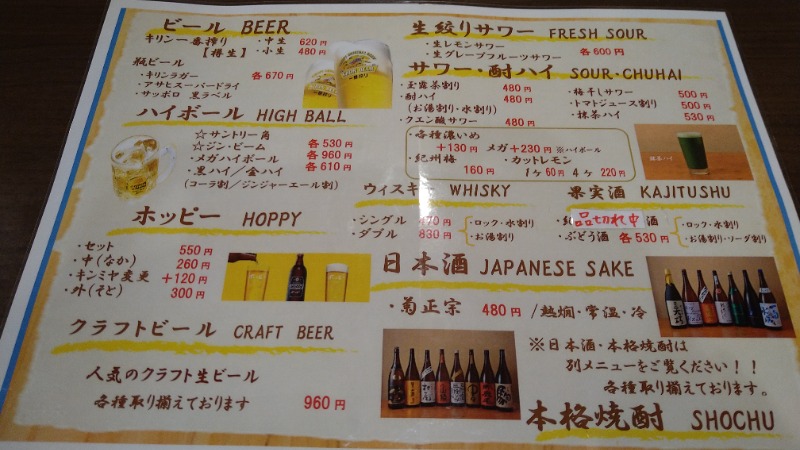 ビール BEER
キリン一番搾り ・中生 620円
【樽生】 ・小生 480円
瓶ビール
・キリンラガー 各670円
・アサヒスーパードライ
・サッポロ 黒ラベル
ハイボール HIGH BALL
☆サントリー角
☆ジン・ビーム 各530円
・メガハイボール 各960円
・黒ハイ/金ハイ 各610円
(コーラ割/ジンジャーエール割)
ホッピー HOPPY
・セット 550円
・中(なか) 260円
・キンミヤ変更 +120円
・外(そと) 300円
クラフトビール CRAFT BEER
人気のクラフト生ビール
各種取り揃えております 960円
生絞りサワー FRESH SOUR
・生レモンサワー
・生グレープフルーツサワー 各600円
サワー・酎ハイ SOUR・CHUHAI
・玉露茶割り 480円
・酎ハイ 480円
(お湯割り・水割り)
・クエン酸サワー 480円
・梅干しサワー 500円
・トマトジュース割り 500円
・抹茶ハイ 530円
・各種濃いめ
+130円 メガ+230円 ※ハイボール
・紀州梅 160円
・カットレモン
1ヶ60円 4ヶ220円
抹茶ハイ
ウィスキー WHISKY
・シングル 470円
・ダブル 830円
・ロック・水割り
・お湯割り
果実酒 KAJITUSHU
品切れ中 酒
・ぶどう酒 各530円
・ロック・水割り
・お湯割り・ソーダ割り
日本酒 JAPANESE SAKE
・菊正宗 480円 /熱燗・常温・冷
※日本酒・本格焼酎は
別メニューをご覧ください!!
各種取り揃えております。
本格焼酎 SHOCHU